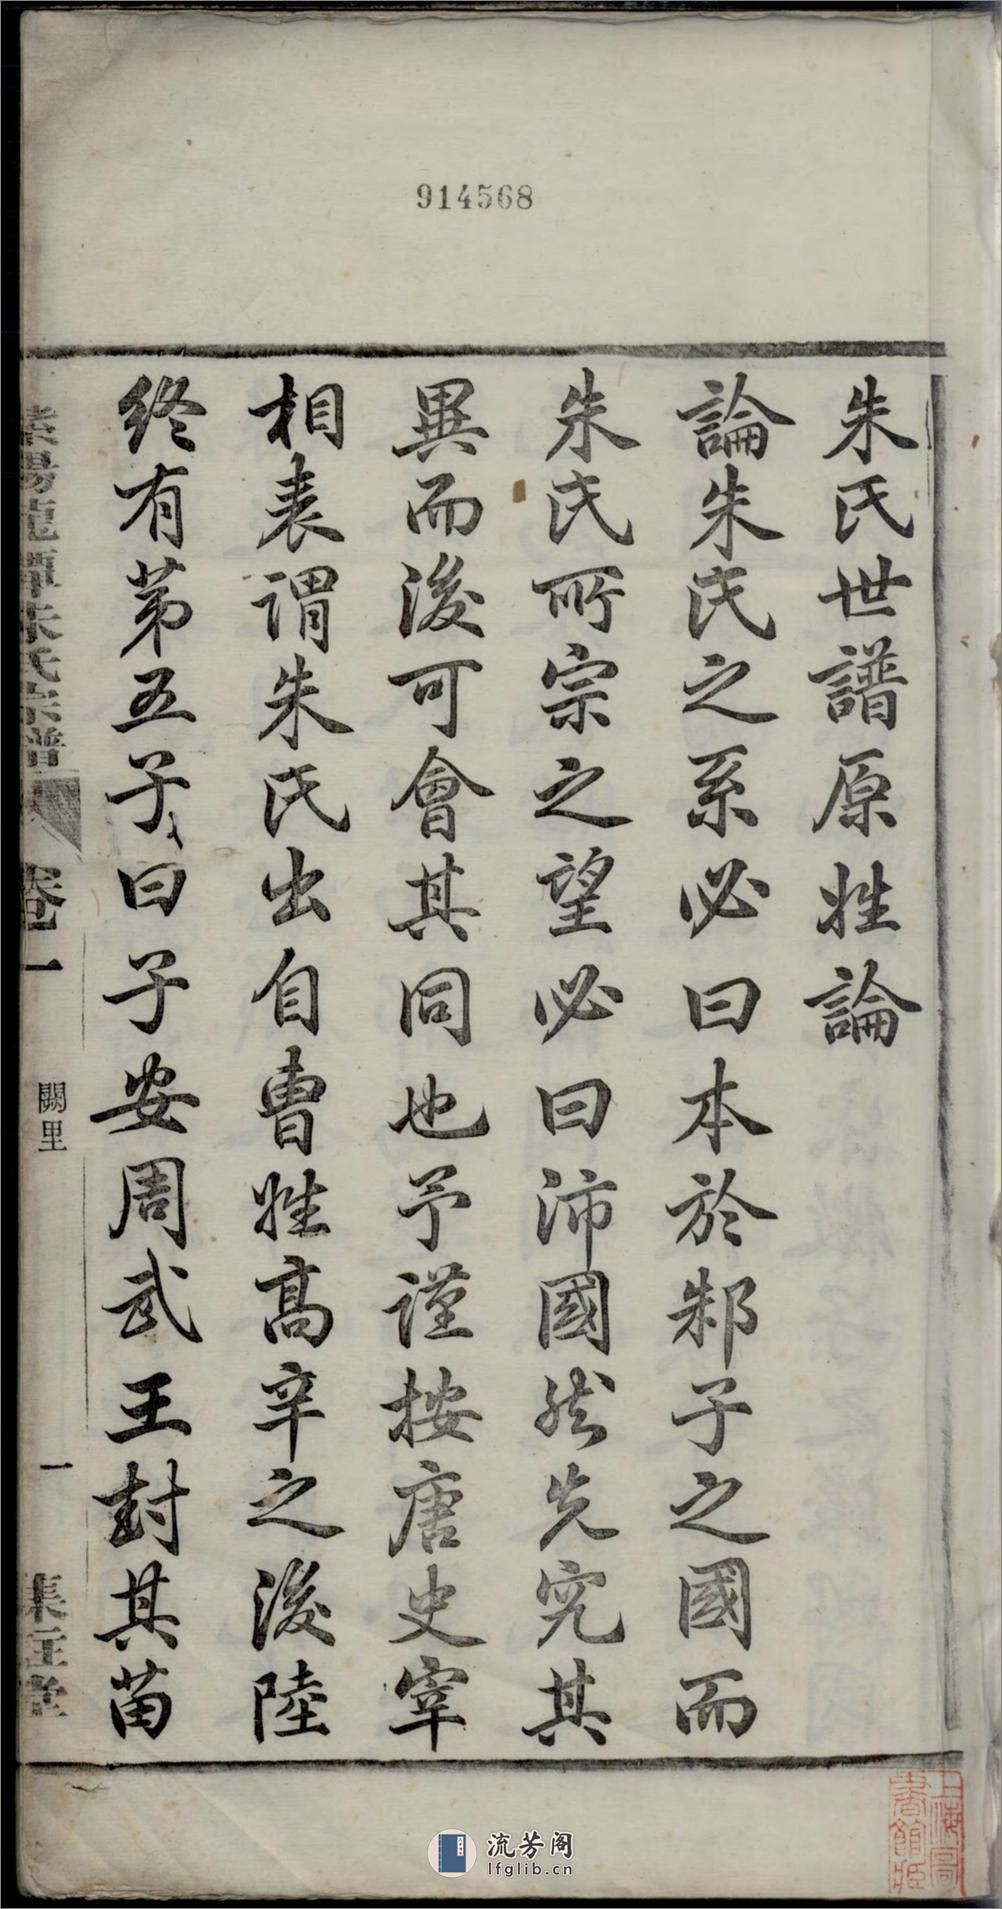 914568
朱氏世譜原姓論
論朱氏之系必曰本於邾子之國而
朱氏所宗之望必曰沛國然先究其
異而後可會其同也予謹按唐史宰
相表謂朱氏出自曹姓高辛之後陸
終有第五子曰子安周武王封其苗
紫陽龍潭朱氏宗譜
卷一
闕里
一
上海圖
書館藏
流芳阁
lfglib.cn